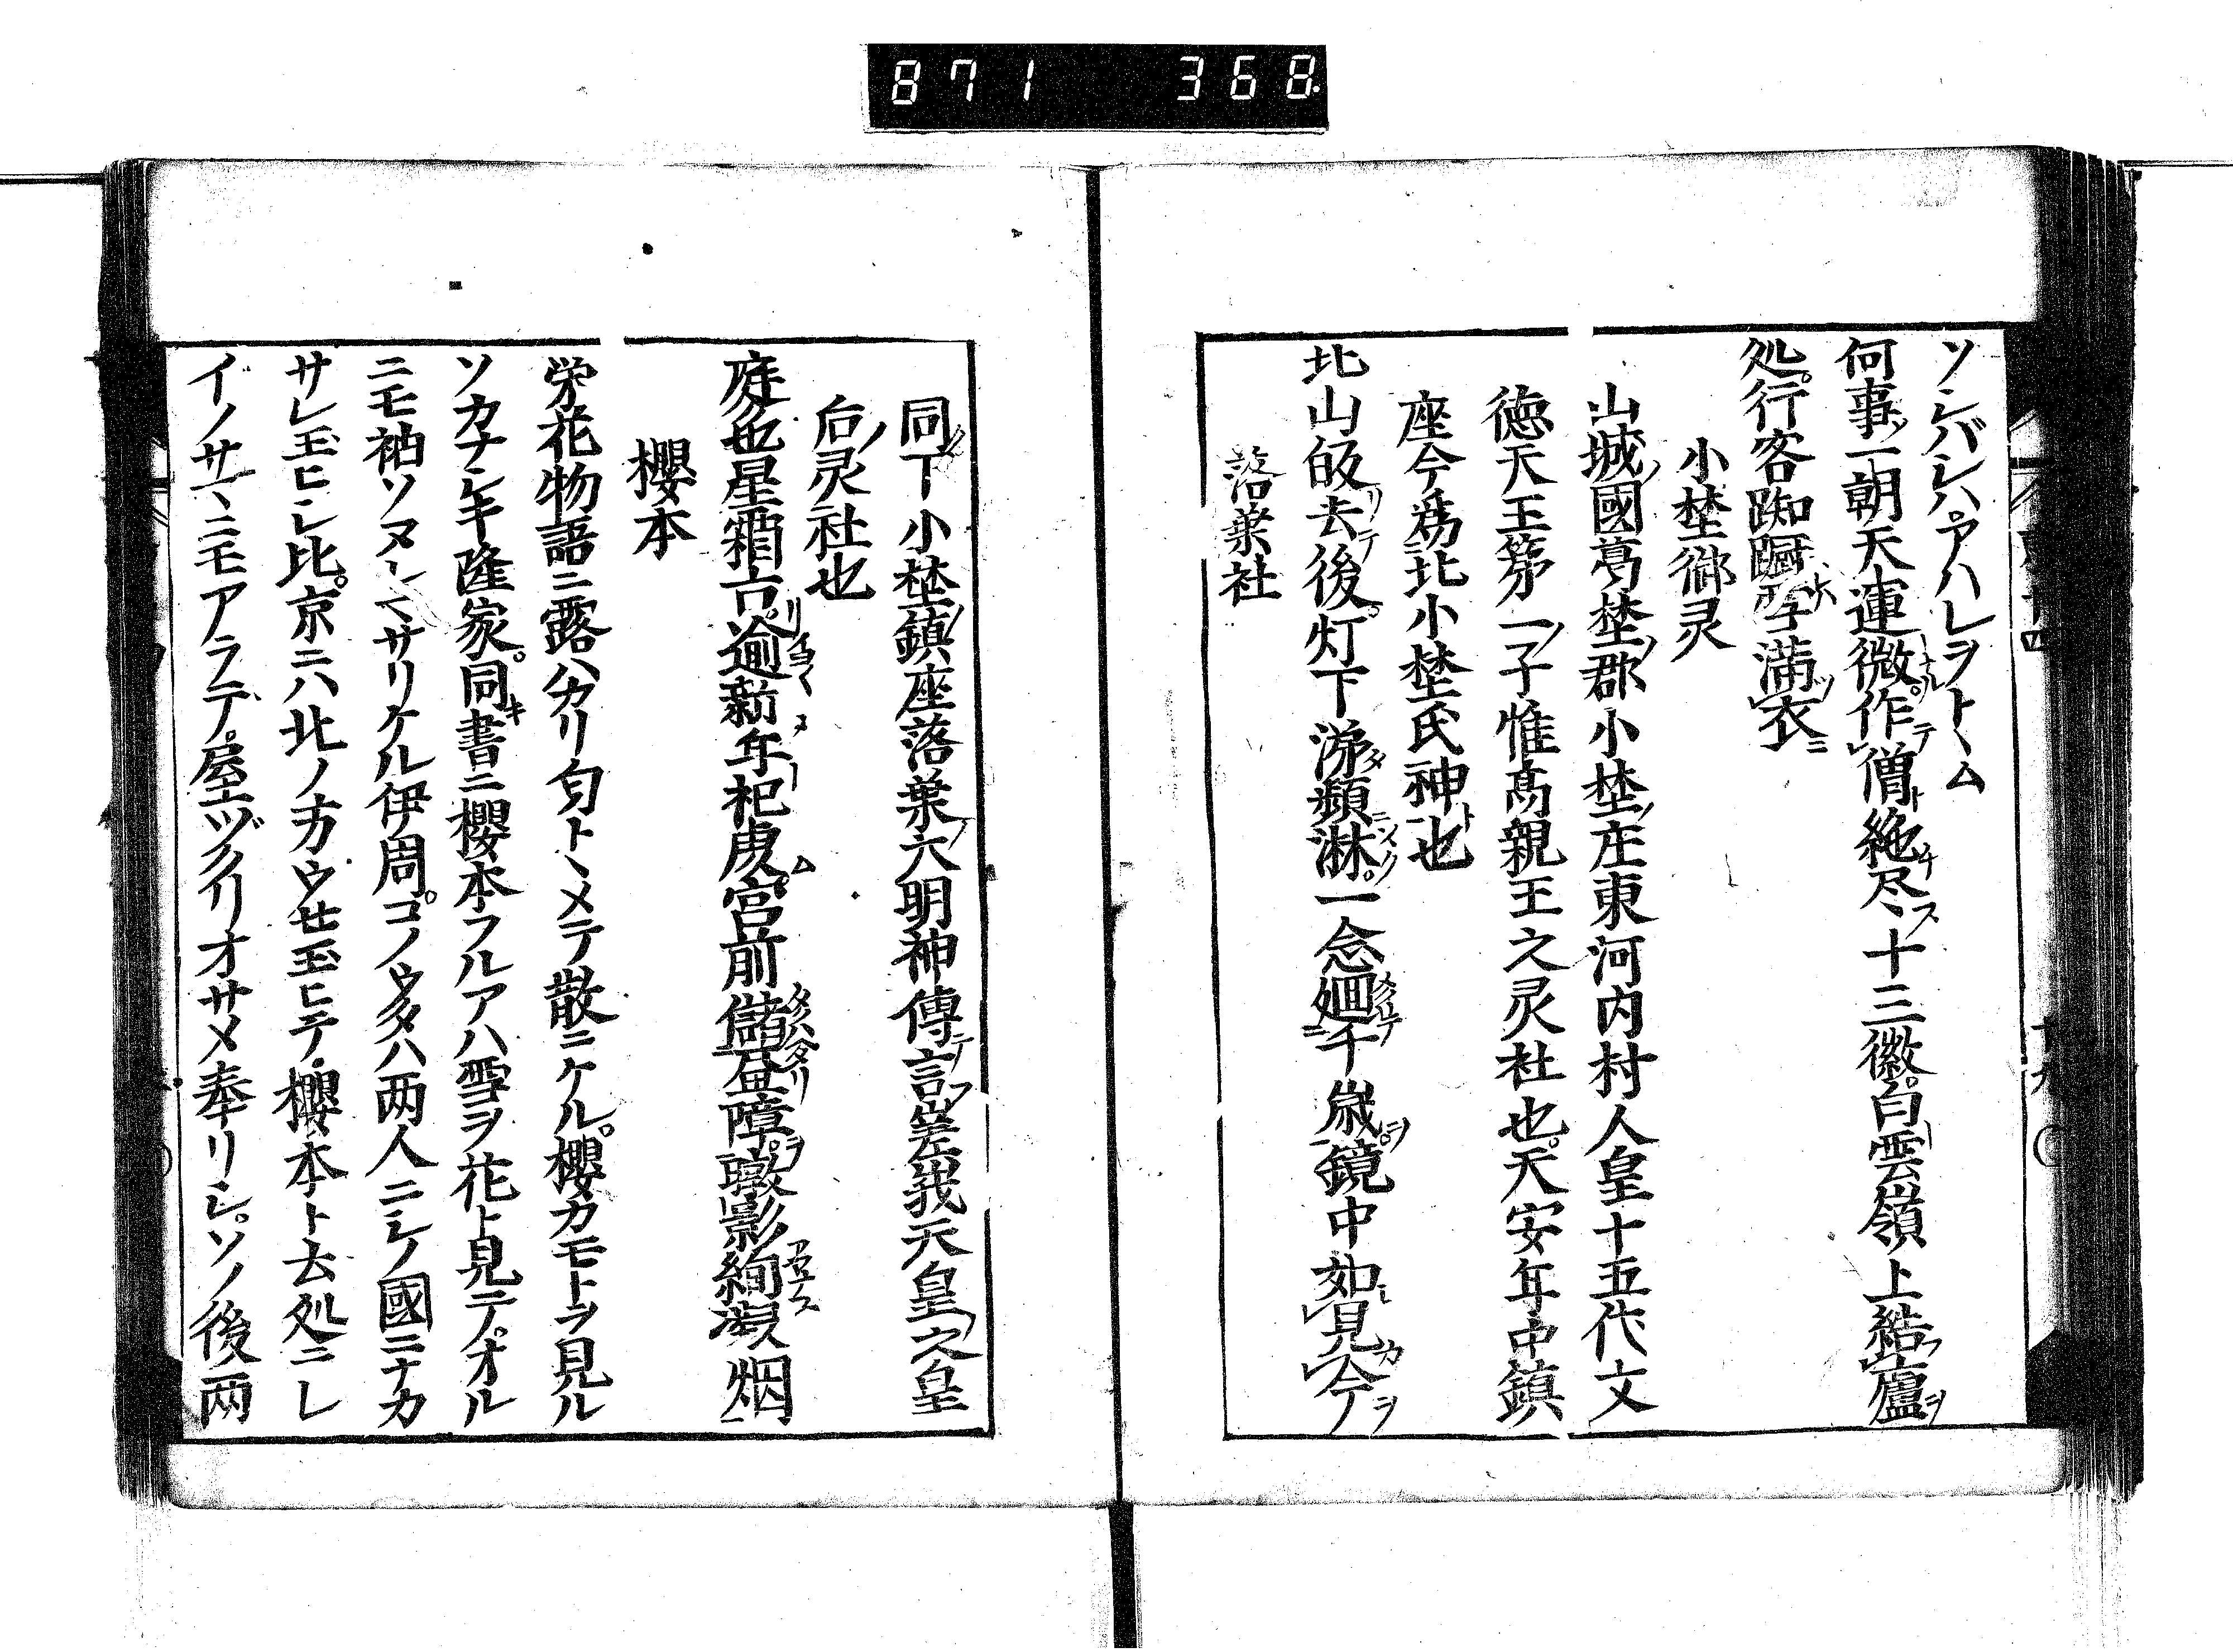 871 368
ソシバシハアハレヲトヽム
何事ソ一朝天運微作僧絶尽ス十三徽白雲嶺上結廬
処行客踟蹰雫満衣
小埜御灵
山城ノ國葛埜ノ郡小埜ノ庄東河内村人皇十五代文
徳天王第一ノ子惟髙親王之灵社也天安年中鎮
座今為北小埜氏神ト也
北山皈去テ後灯下涕頻淋一念廻千歳鏡中如見今
落葉社
同下小埜ノ鎮座落葉ノ大明神傳テ言フ嵯峨天皇ノ之皇
后ノ灵社也
庭也星霜古逾新年祀虔宮前儲
櫻本
栄花物語ニ露ハカリ匂トヽメテ散ニケル櫻カモトヲ見ル
ソカナシキ隆家同キ書ニ櫻本フルアハ雪ヲ花ト見テオル
ニモ袖ソヌレマサリケル伊周コノウタハ两人ニシノ國ニナカ
サレ玉ヒシ比京ニハ北ノ方ウセ玉ヒテ櫻本ト去処ニシ
イノサヽニモアラデ屋ヅクリオサメ奉リシソノ後两